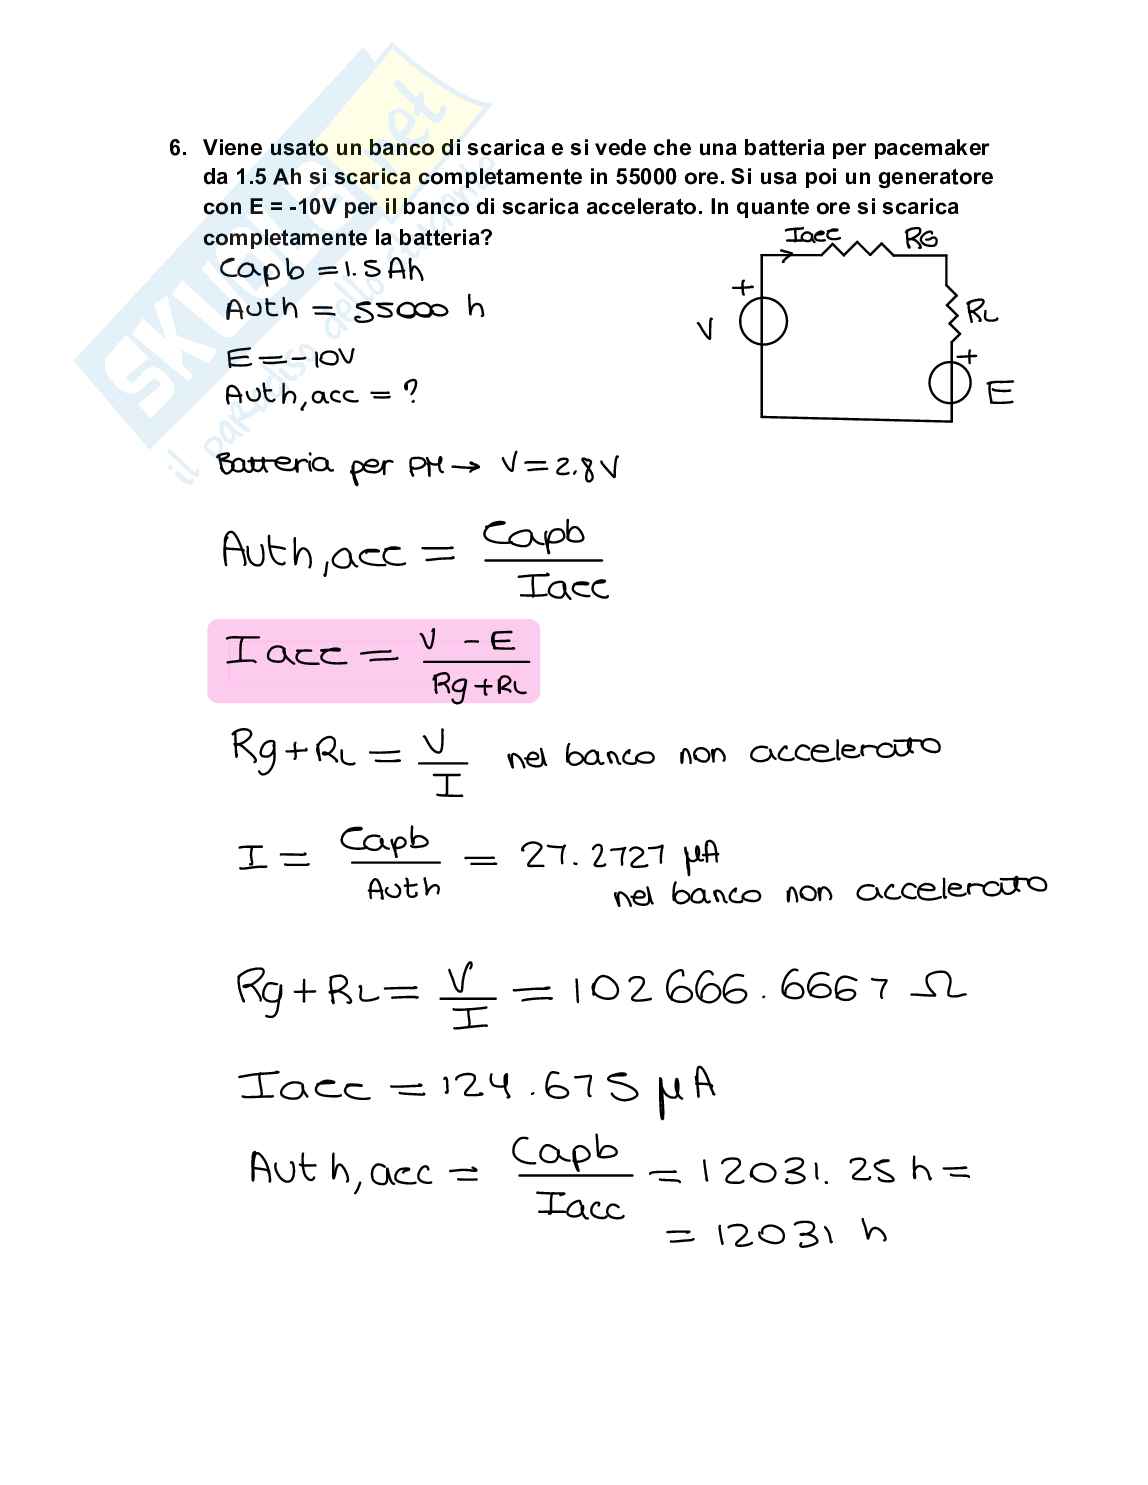 SKUOLA.net
il paradiso dello studente
6. Viene usato un banco di scarica e si vede che una batteria per pacemaker
da 1.5 Ah si scarica completamente in 55000 ore. Si usa poi un generatore
con E = -10V per il banco di scarica accelerato. In quante ore si scarica
completamente la batteria?
Iacc RG
Capb = 1.5 Ah
Auth = 55000 h
+ V RL + E
E = -10V
Auth,acc = ?
Batteria per PM → V = 2.8 V
Auth,acc = Capb / Iacc
Iacc = V - E / Rg + RL
Rg + RL = V / I nel banco non accelerato
I = Capb / Auth = 27.2727 µA
nel banco non accelerato
Rg + RL = V / I = 102 666.6667 Ω
Iacc = 124.675 µA
Auth,acc = Capb / Iacc = 12031.25 h =
= 12031 h